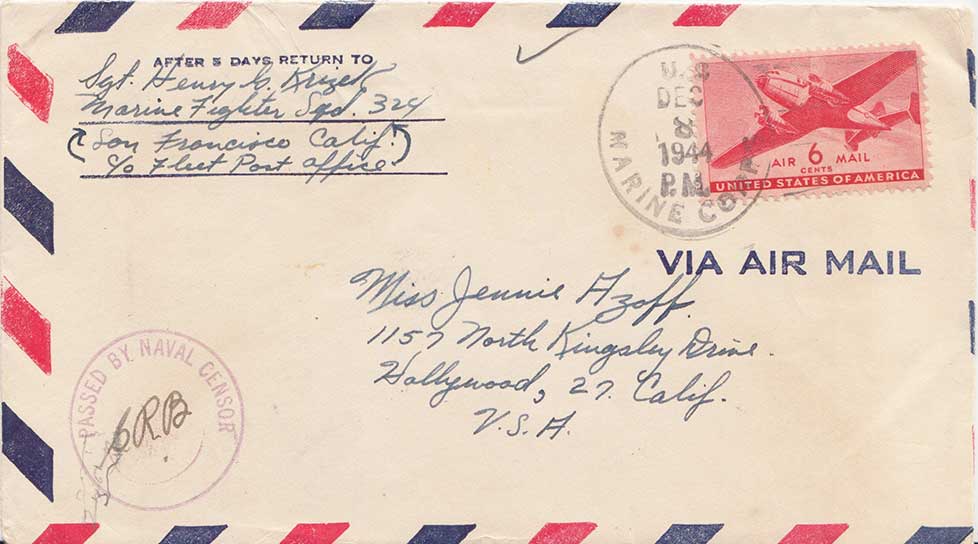 AFTER 5 DAYS RETURN TO
Sgt. Henry G. Krizek
Marine Fighter Sqd. 324
San Francisco Calif.
c/o Fleet Post Office
U.S
DEC
8
1944
P.M.
MARINE CORPS
AIR 6 MAIL
CENTS
UNITED STATES OF AMERICA
VIA AIR MAIL
Miss Jennie Azoff.
1157 North Kingsley Drive.
Hollywood, 27. Calif.
U.S.A.
PASSED BY NAVAL CENSOR